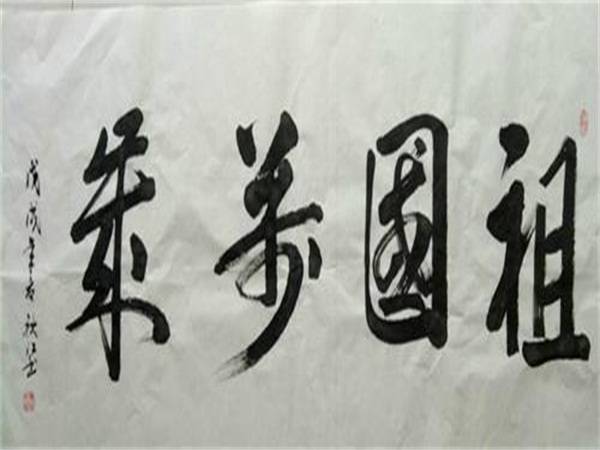 祖國萬歲
戊戌年